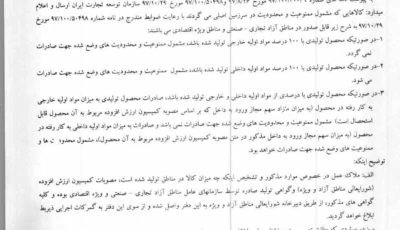 مورخ ۹۷/۱۰/۲۹ سازمان توسعه تجارت ایران ارسال و اعلام
میدارد: کالاهایی که مشمول ممنوعیت و محدودیت در سرزمین اصلی می گردند با رعایت ضوابط مندرج در نامه شماره ۹۷/۱۰۰/۵۰۴۹۸ مورخ
۹۷/۱۰/۲۹ به شرح زیر قابل صدور در مناطق آزاد تجاری - صنعتی و مناطق ویژه اقتصادی می باشند:
۱-در صورتیکه محصول تولیدی با ۱۰۰ درصد مواد اولیه خارجی تولید شده باشد، مشمول ممنوعیت و محدودیت های وضع شده جهت صادرات
نمی گردد.
۲-در صورتیکه محصول تولیدی با ۱۰۰ درصد مواد اولیه داخلی تولید شده باشد، مشمول ممنوعیت و محدودیت های وضع شده جهت صادرات
می شود.
۳-در صورتیکه محصول تولیدی با درصدی از مواد اولیه داخلی و خارجی تولید شده باشد، صادرات محصول تولیدی به میزان مواد اولیه خارجی
به کار رفته در محصول (به میزان مازاد سهم مجاز ورود به داخل کشور که در بر اساس مصوبه کمیسیون ارزش افزوده مربوط به آن محصول قابل
استحصال است) مشمول ممنوعیت و محدودیت های وضع شده جهت صادرات نمی باشد و صادرات به میزان مواد اولیه داخلی به کار رفته در
محصول (به میزان سهم مجاز ورود به داخل مذکور در متن مصوبه کمیسیون ارزش افزوده مربوط به آن محصول)، مشمول محدود ها و
ممنوعیت های وضع شده جهت صادرات خواهد بود.
توضیح اینکه:
الف: ملاک عمل در خصوص موارد مذکور و تشخیص اینکه چه میزان کالا در مناطق تولید شده است، مصوبات کمیسیون ارزش افزوده
(شورایعالی مناطق آزاد و ویژه) وگواهی تولید صادره توسط سازمانهای عامل مناطق آزاد تجاری - صنعتی و ویژه اقتصادی بوده و کلیه
گواهی های مذکور، از طریق دبیرخانه شورایعالی مناطق آزاد و ویژه به این دفتر واصل شده و از سوی این دفتر به گمرکات اجرایی ذیربط
ابلاغ خواهد گردید.